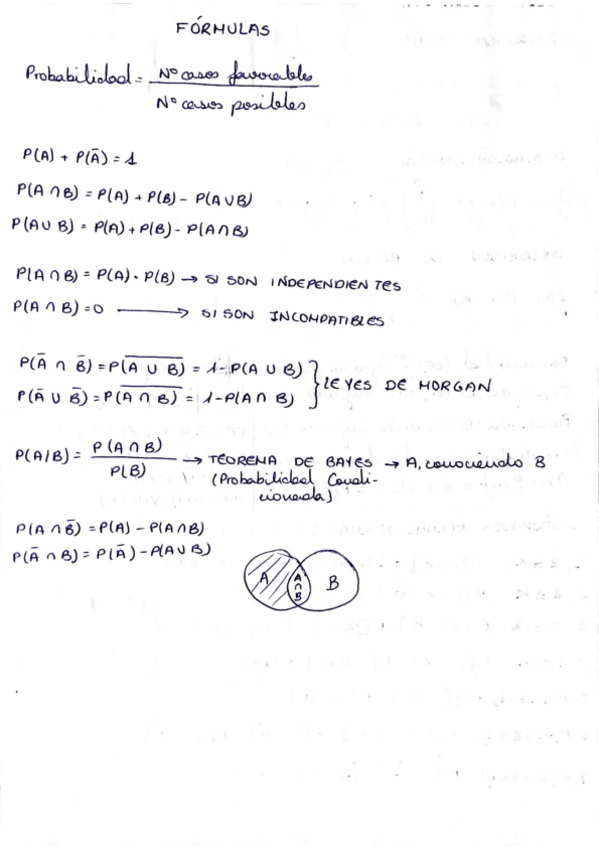 FÓRMULAS
Probabilidad = Nº casos favorables / Nº casos posibles
P(A) + P(Ā) = 1
P(A ∩ B) = P(A) + P(B) - P(A ∪ B)
P(A ∪ B) = P(A) + P(B) - P(A ∩ B)
P(A ∩ B) = P(A) · P(B) → SI SON INDEPENDIENTES
P(A ∩ B) = 0 → SI SON INCOMPATIBLES
P(Ā ∩ B̄) = P(\overline{A ∪ B}) = 1 - P(A ∪ B)
P(Ā ∪ B̄) = P(\overline{A ∩ B}) = 1 - P(A ∩ B)
} LEYES DE MORGAN
P(A/B) = P(A ∩ B) / P(B) → TEOREMA DE BAYES → A, conociendo B
(Probabilidad Condi-
cionada)
P(A ∩ B̄) = P(A) - P(A ∩ B)
P(Ā ∩ B) = P(Ā) - P(A ∪ B)
A A ∩ B B